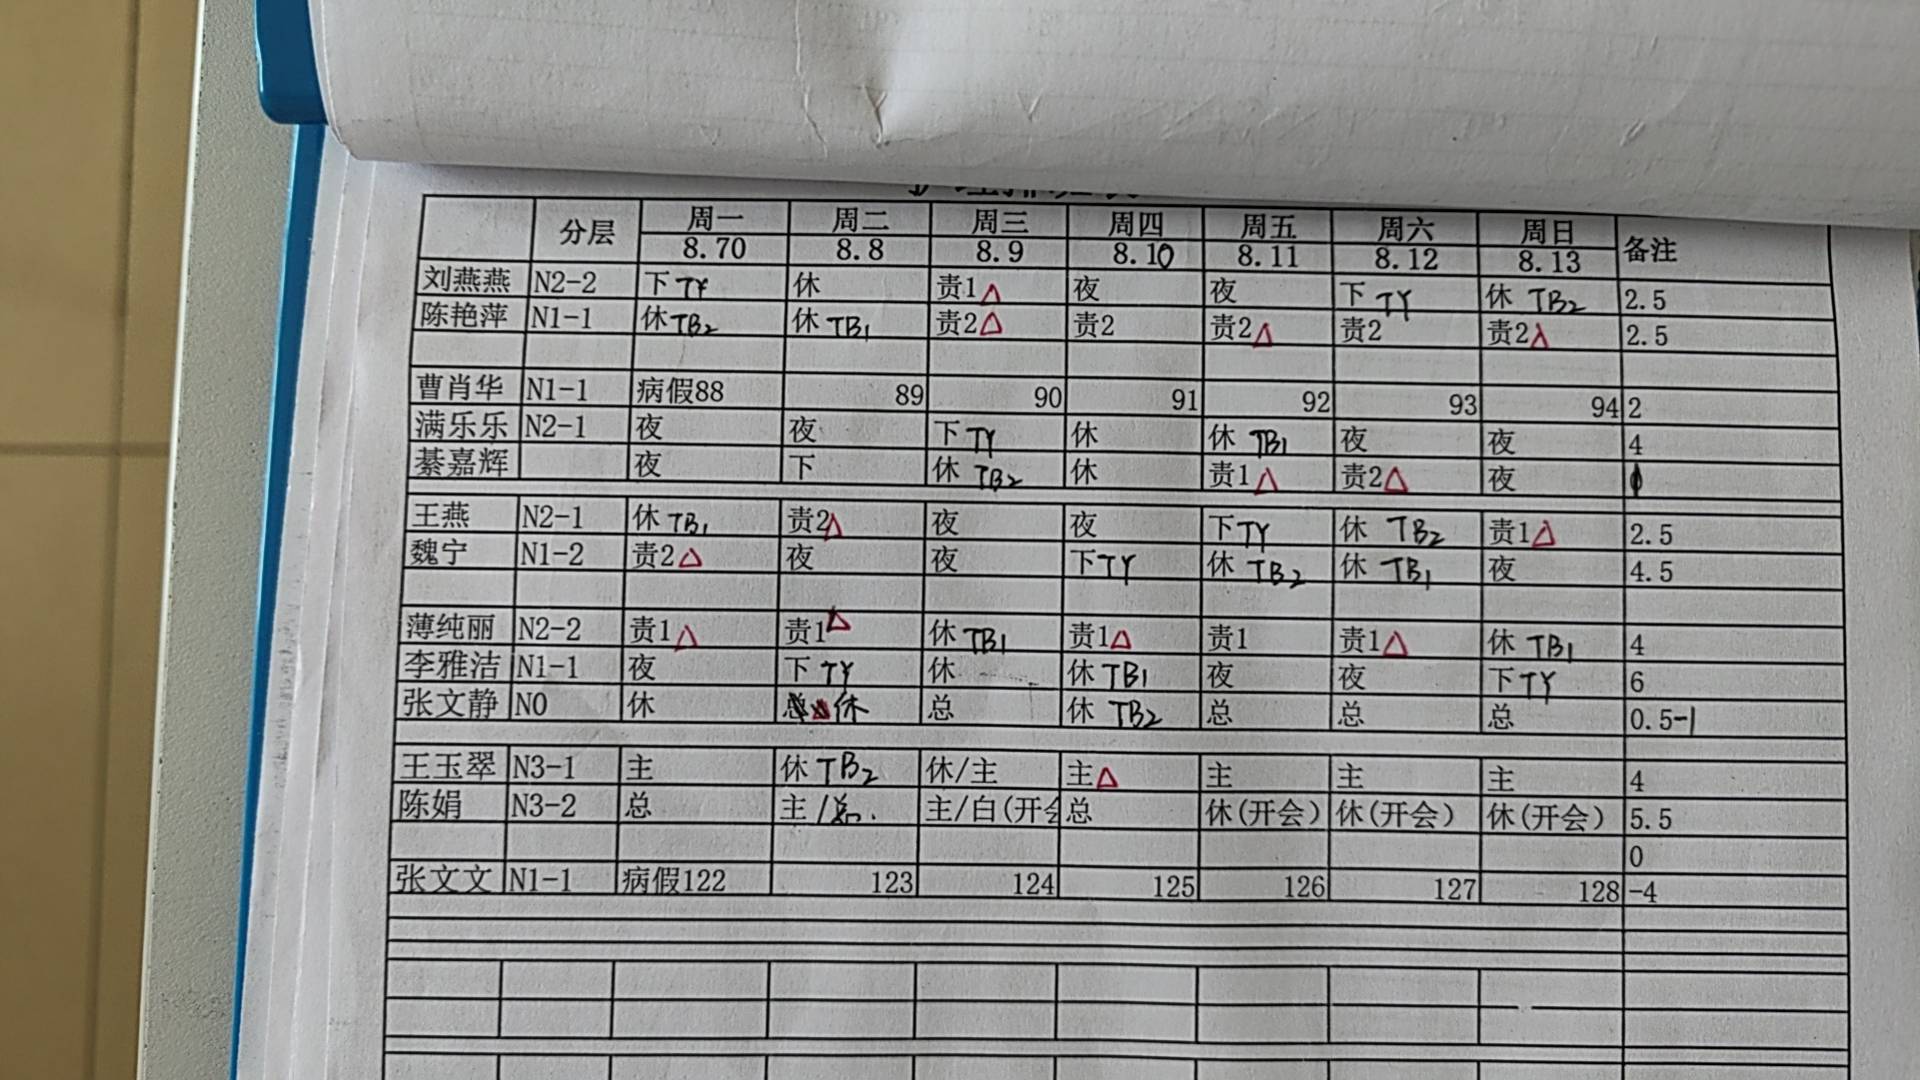 分层 周一 周二 周三 周四 周五 周六 周日 备注
8.70 8.8 8.9 8.10 8.11 8.12 8.13
刘燕燕 N2-2 下TY 休 责1△ 夜 夜 下TY 休TB2 2.5
陈艳萍 N1-1 休TB2 休TB1 责2△ 责2 责2△ 责2 责2△ 2.5
曹肖华 N1-1 病假88 89 90 91 92 93 94 2
满乐乐 N2-1 夜 夜 下TY 休 休TB1 夜 夜 4
綦嘉辉 夜 下 休TB2 休 责1△ 责2△ 夜
王燕 N2-1 休TB1 责2△ 夜 夜 下TY 休TB2 责1△ 2.5
魏宁 N1-2 责2△ 夜 夜 下TY 休TB2 休TB1 夜 4.5
薄纯丽 N2-2 责1△ 责1△ 休TB1 责1△ 责1 责1△ 休TB1 4
李雅洁 N1-1 夜 下TY 休 休TB1 夜 夜 下TY 6
张文静 N0 休 休 总 休TB2 总 总 总 0.5-1
王玉翠 N3-1 主 休TB2 休/主 主△ 主 主 主 4
陈娟 N3-2 总 主/总. 主/白(开会 总 休(开会) 休(开会) 休(开会) 5.5
0
张文文 N1-1 病假122 123 124 125 126 127 128 -4